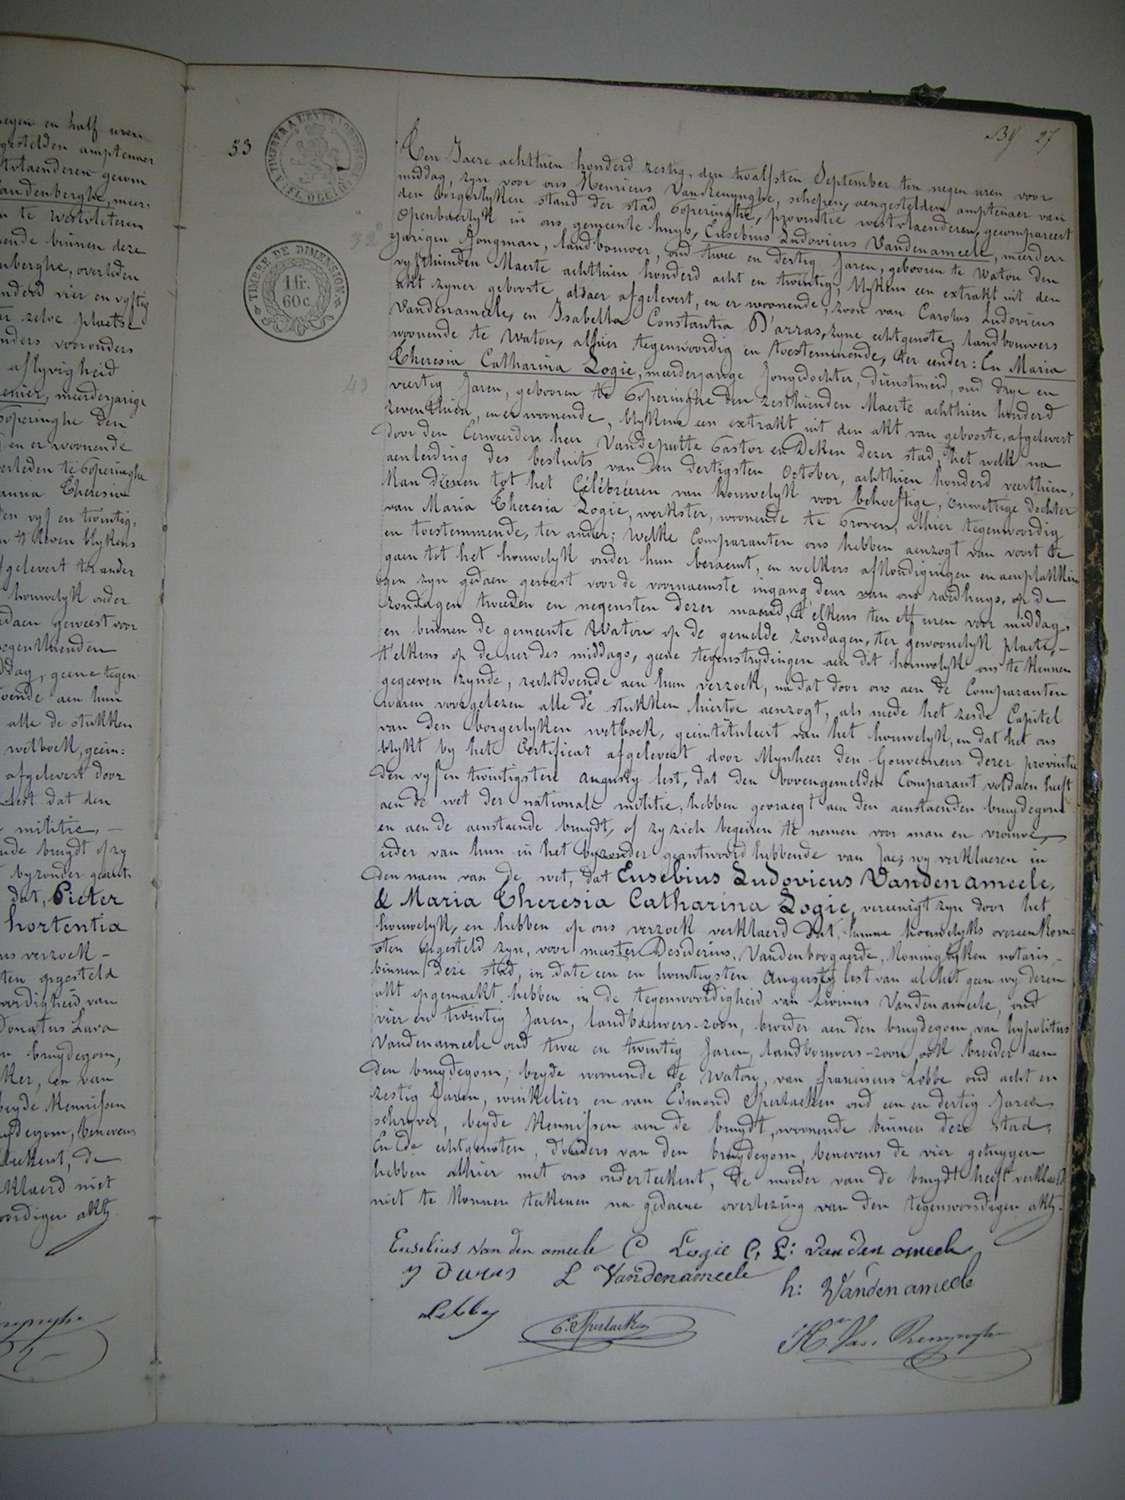 53
TIMBRE A L'EXTRAORDINAIRE
TIMBRE DE DIMENSION
1 fr.
60 c.
27
Den Jaere achthien honderd zestig, den twalfsten September ten negen uren voor
middag, zyn voor ons Henricus Van Renynghe, schepen, aengestelden amptenaer van
den borgerlyken stand der stad Poperinghe, provintie westvlaenderen, gecompareert
openbaerlyk in ons gemeente huys, Eusebius Ludovicus Vandenameele, meerder
jarigen Jongman, landbouwer, oud twee en dertig Jaren, gebooren te Watou den
vyfthienden Maerte achthien honderd acht en twintig, blykens een extrakt uit den
akt zyner geboorte aldaer afgelevert, en er woonende, zoon van Carolus Ludovicus
Vandenameele, en Isabella Constantia D'arras, zyne echtgenote, landbouwers
woonende te Watou, alhier tegenwoordig en toestemmende, ter eender: En Maria
Theresia Catharina Logie, meerderjarige Jongedochter, dienstmeid, oud drye en
veertig Jaren, gebooren te Poperinghe den zesthienden Maerte achthien honderd
zeventhien, en er woonende, blykens een extrakt uit den akt van geboorte, afgelevert
door den Eerweerden heer Vandeputte Pastor en Deken dezer stad, het welk na
aenleiding des besluits van den dertigsten October, achthien honderd veerthien,
kan dienen tot het Célébreeren van houwelyk voor behoeftige, onwettige dochter
van Maria Theresia Logie, werkster, woonende te Proven, alhier tegenwoordig
en toestemmende, ter ander; welke Comparanten ons hebben aenzogt van voort te
gaen tot het houwelyk onder hun beraemt, en welkers afkondigingen en aenplakkin
gen zyn gedaen geweest voor de voornaemste ingang deur van ons raedhuys, op de
zondagen tweeden en negensten dezer maend, t'elkens ten elf uren voor middag,
en binnen de gemeente Watou op de gemelde zondagen, ter gewoonelyk plaets,
t'elkens op de uer des middags, geene tegenstrydingen aen dit houwelyk ons te kennen
gegeeven zynde, rechtdoende aen hun verzoek, na dat door ons aen de Comparanten
waren voorgelezen alle de stukken hiertoe aenzogt, als mede het zesde Capitel
van den borgerlyken wetboek, geintituleert van het houwelyk, en dat het ons
blykt by het Certificat afgelevert door Mynheer den Gouverneur dezer provintie
den vyf en twintigsten augusty lest, dat den bovengemelden Comparant voldaen heeft
aen de wet der nationale militie, hebben gevraegt aen den aenstaenden bruydegom
en aen de aenstaende bruydt, of zy zich begeiren te nemen voor man en vrouwe,
ieder van hun in het byzonder geantwoord hebbende van Jae; wy verklaeren in
den naem van de wet, dat Eusebius Ludovicus Vandenameele,
& Maria Theresia Catharina Logie, vereenigt zyn door het
houwelyk, en hebben op ons verzoek verklaerd dat hunne houwelyks overeenkom
sten opgesteld zyn, voor meester Desiderius Vandenboogaerde, Koninglyken notaris
binnen deze stad, in date een en twintigsten Augusty lest van al het geen wy dezen
akt opgemaekt hebben in de tegenwoordigheid van Livinus Vandenameele, oud
vier en twintig Jaren, landbouwers-zoon, broeder aen den bruydegom, van hypolitus
Vandenameele oud twee en twintig Jaren, landbouwers-zoon, ook broeder aen
den bruydegom, beyde woonende te Watou, van franciscus Lebbe oud acht en
zestig Jaren, winkelier en van Edmond Sperlaeken oud een en dertig Jaren
schryver, beyde Kennissen aen de bruydt, woonende binnen deze Stad,
En de echtgenoten, d'ouders van den bruydegom, benevens de vier getuygen
hebben alhier met ons onderteekent, de moeder van de bruydt heeft verklaerd
niet te konnen teekenen na gedaene voorlezing van den tegenwoordigen akt.
Eusebius Van den ameele C Logie C, L: Van den ameele
L Vandenameele
h: Vandenameele
Lebbe
E. Sperlaeken
H. Van Renynghe
egen en half uren
gestelden amptenaer
vandenberghe, meer
n te westvleteren
ende binnen deze
nberghe, overleden
nderd vier en vyftig
r zelve plaetse
nders vooronders
aflyvigheid
meerderjarige
Poperinghe den
en er woonende
verleden te Poperinghe
Theresia
en vyf en twintig,
blykens
fgelevert ter ander
houwelyk onder
edaen geweest voor
geene tegen
aen hun
alle de stukken
wetboek, gein:
afgelevert door
lest. dat den
militie,
nde bruydt of zy
byzonder geant
dat, Pieter
hortentia
ns verzoek
ten opgesteld
oordigheid van
Donatus Lava
n bruydegom,
en van
beyde Kennissen
uydegom, benevens
teekent, de
klaerd niet
oordigen akt.